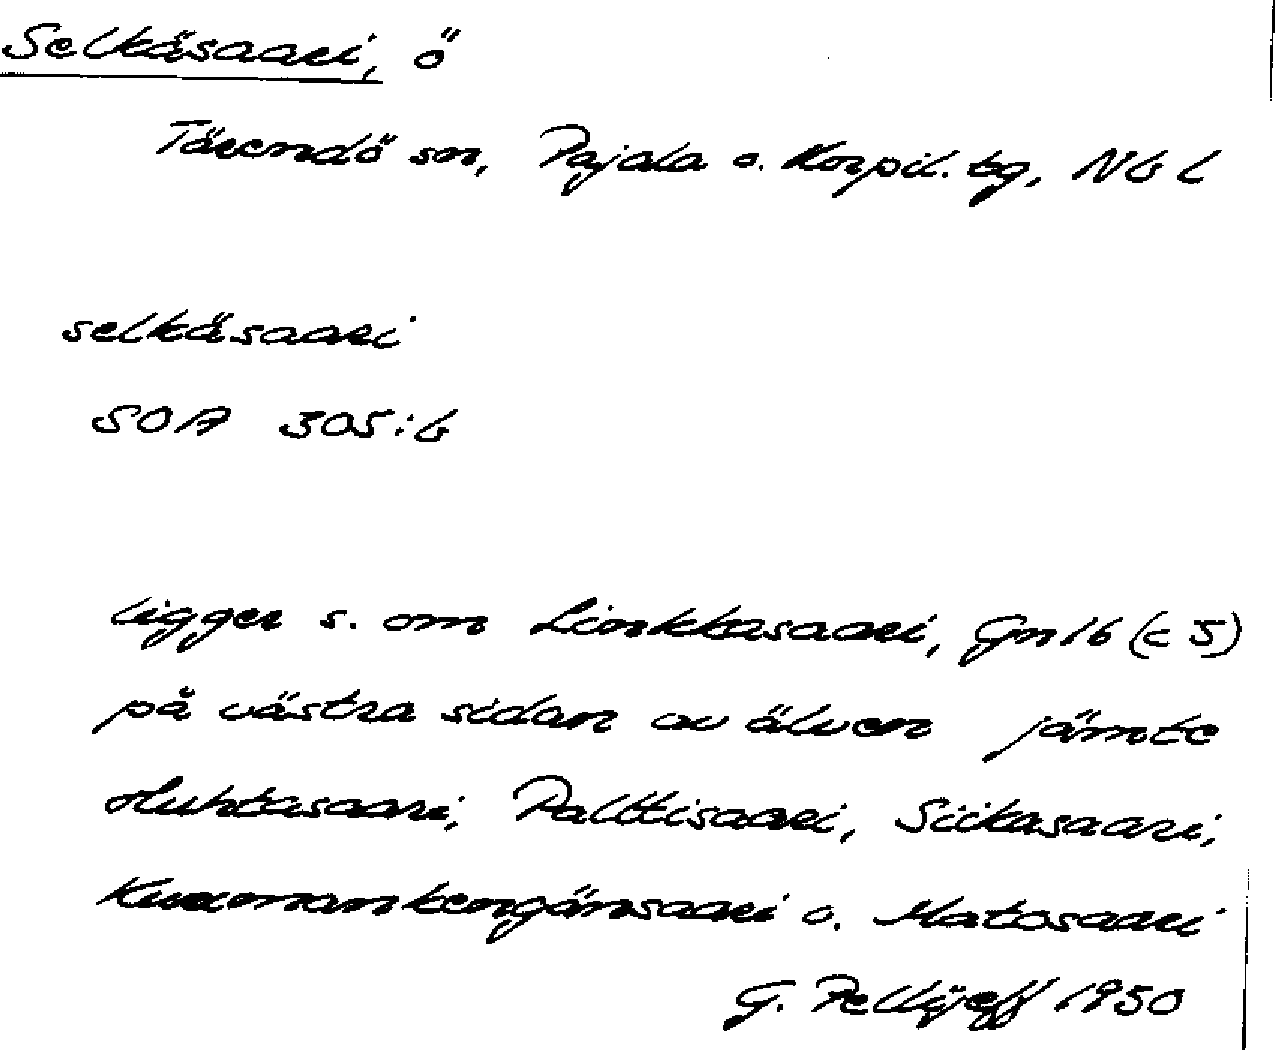 Selkäsaari, ö
Tärendö sn, Pajala o. Korpil. tg, Nb L
selkäsaari
SOA 305:6
ligger s. om Linkkasaari, Gn 16 (c 5)
på västra sidan av älven jämte
Huhtasaari, Palttisaari, Siikasaari,
o. Matosaari
G. Pellijeff 1950